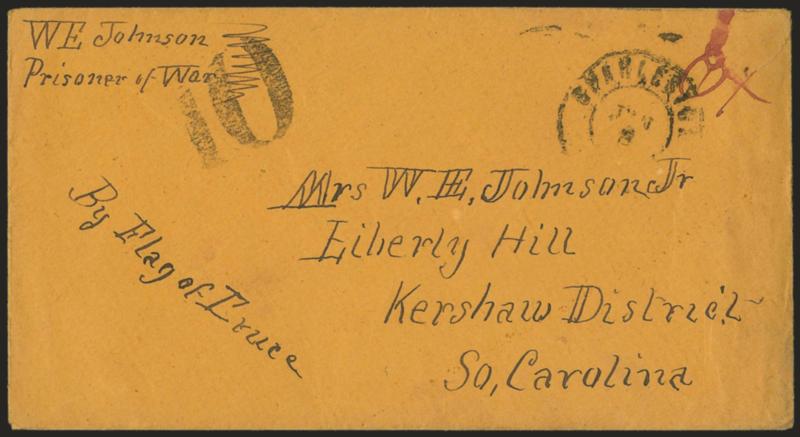 WE Johnson
Prisoner of War
10
By Flag of Truce
Mrs W. E. Johnson Jr
Liberty Hill
Kershaw District
So, Carolina